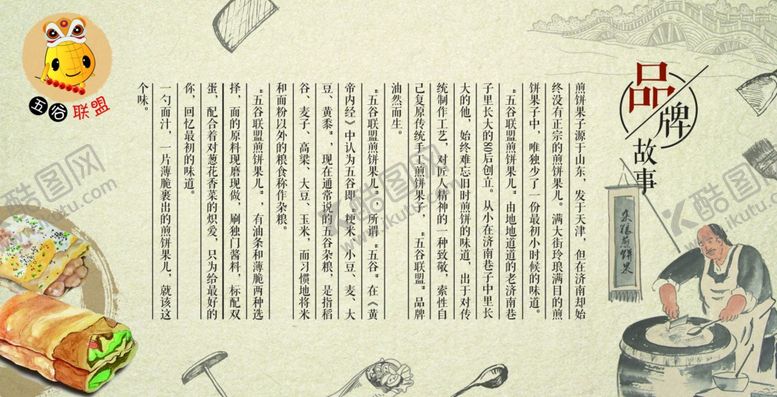 品牌故事
煎饼果子源于山东，发于天津，但在济南却始
终没有正宗的煎饼果儿。满大街玲琅满目的煎
饼果子中，唯独少了一份最初小时候的味道。
"五谷联盟煎饼果儿"由地地道道的老济南巷
子里长大的80后创立。从小在济南巷子中里长
大的他，始终难忘旧时煎饼的味道，出于对传
统制作工艺，对匠人精神的一种致敬，索性自
己复原传统手工煎饼果子，"五谷联盟"品牌
油然而生。
"五谷联盟煎饼果儿"，所谓"五谷"在《黄
帝内经》中认为五谷即"粳米、小豆、麦、大
豆、黄黍"，现在通常说的五谷杂粮，是指稻
谷、麦子、高粱、大豆、玉米，而习惯地将米
和面粉以外的粮食称作杂粮。
"五谷联盟煎饼果儿"，有油条和薄脆两种选
择，面的原料现磨现做，刷独门酱料，标配双
蛋，配合着对葱花香菜的炽爱，只为给最好的
你，回忆最初的味道。
一勺面汁，一片薄脆裹出的煎饼果儿，就该这
个味。
五谷联盟